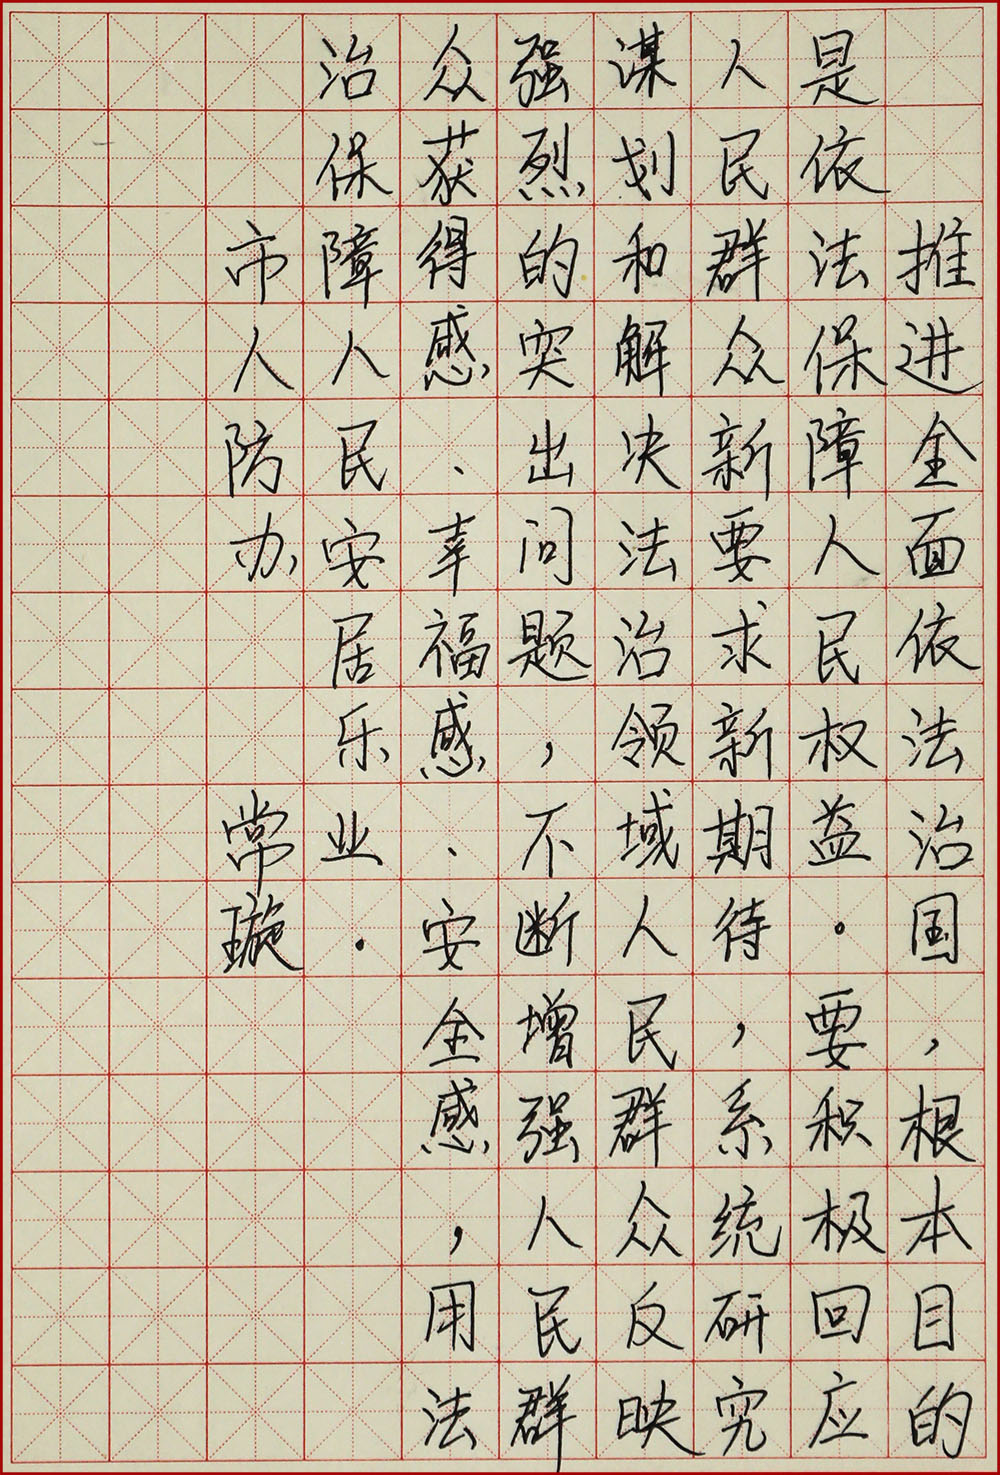 推进全面依法治国，根本目的
是依法保障人民权益。要积极回应
人民群众新要求新期待，系统研究
谋划和解决法治领域人民群众反映
强烈的突出问题，不断增强人民群
众获得感、幸福感、安全感，用法
治保障人民安居乐业。
市人防办 常璇